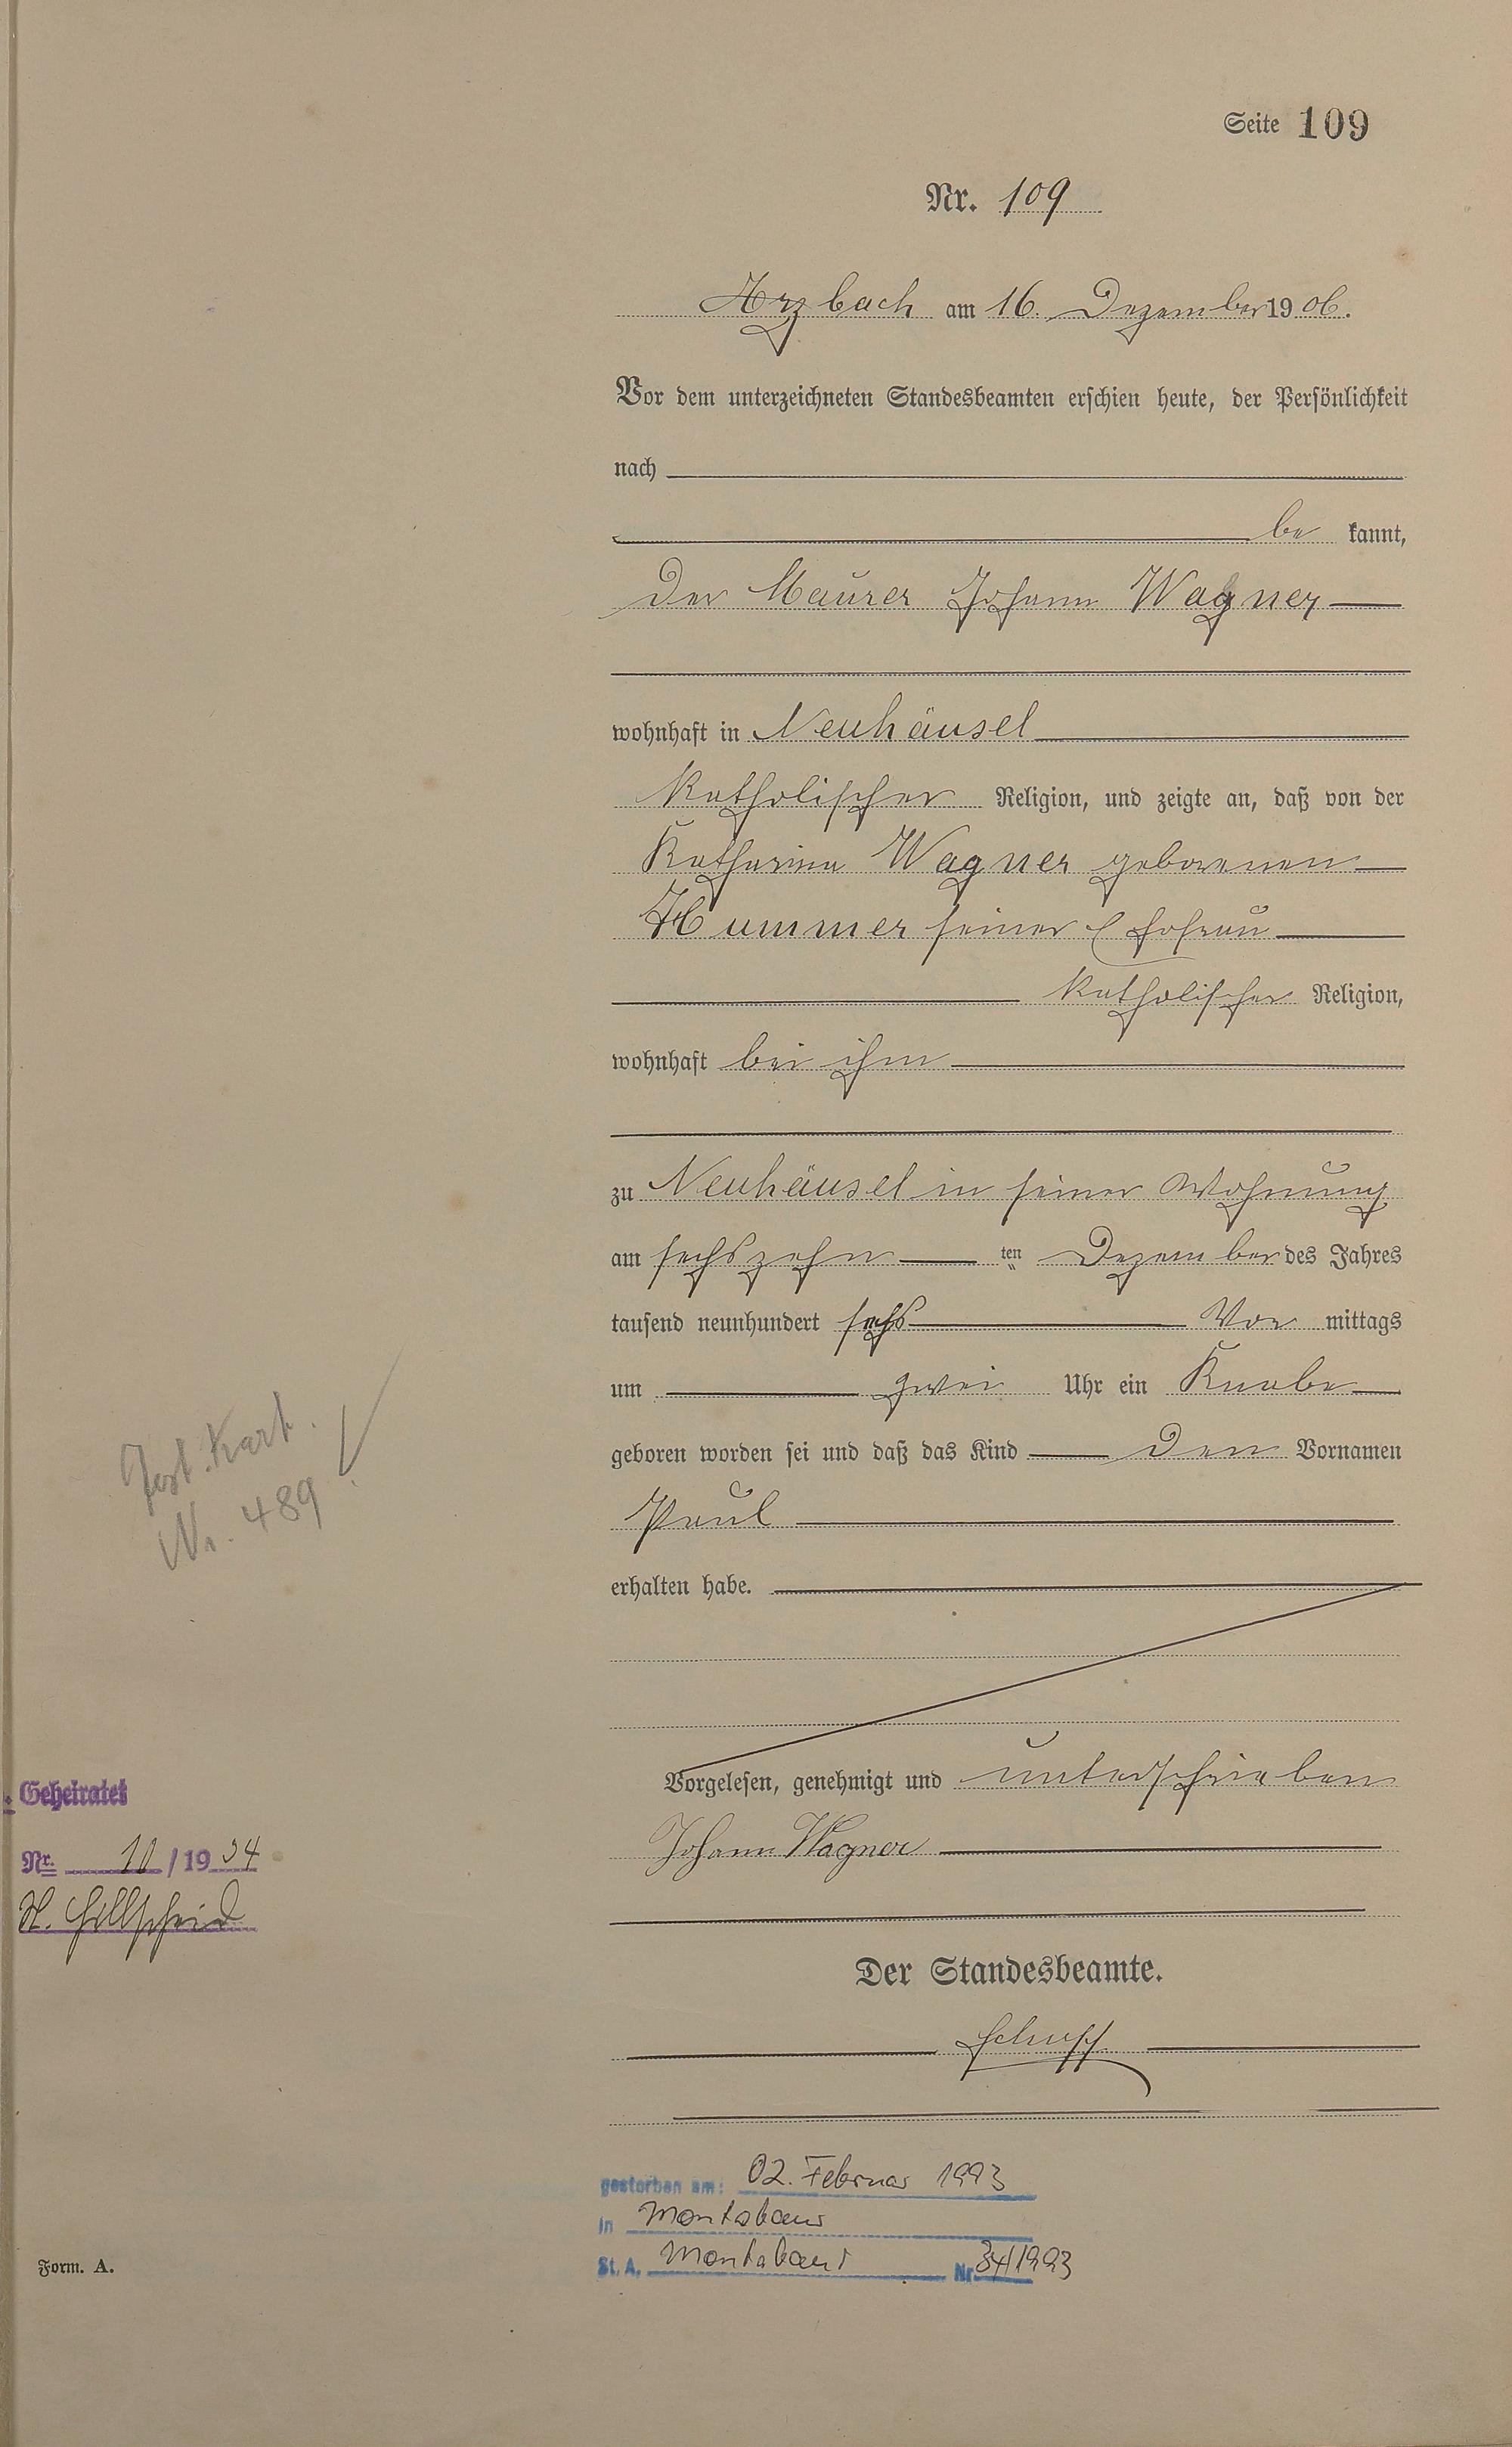 Seite 109
Nr. 109
Arzbach am 16. Dezember 1906.
Vor dem unterzeichneten Standesbeamten erschien heute, der Persönlichkeit
nach
be kannt,
der Maurer Johann Wagner
wohnhaft in Neuhäusel
katholischer Religion, und zeigte an, daß von der
Katharina Wagner geborenen
Hummer seiner Ehefrau
katholischer Religion,
wohnhaft bei ihm
zu Neuhäusel in seiner Wohnung
am sechszehn ten Dezember des Jahres
tausend neunhundert sechs Vor mittags
um zwei Uhr ein Knabe
geboren worden sei und daß das Kind den Vornamen
Paul
erhalten habe.
Vorgelesen, genehmigt und unterschrieben
Johann Wagner
Der Standesbeamte.
Schupp
gestorben am: 02. Februar 1993
in Montabaur
St. A. Montabaur Nr. 34/1993
Kart.
Nr. 489
Geheiratet
Nr. 10/1934
Hillscheid
Form. A.